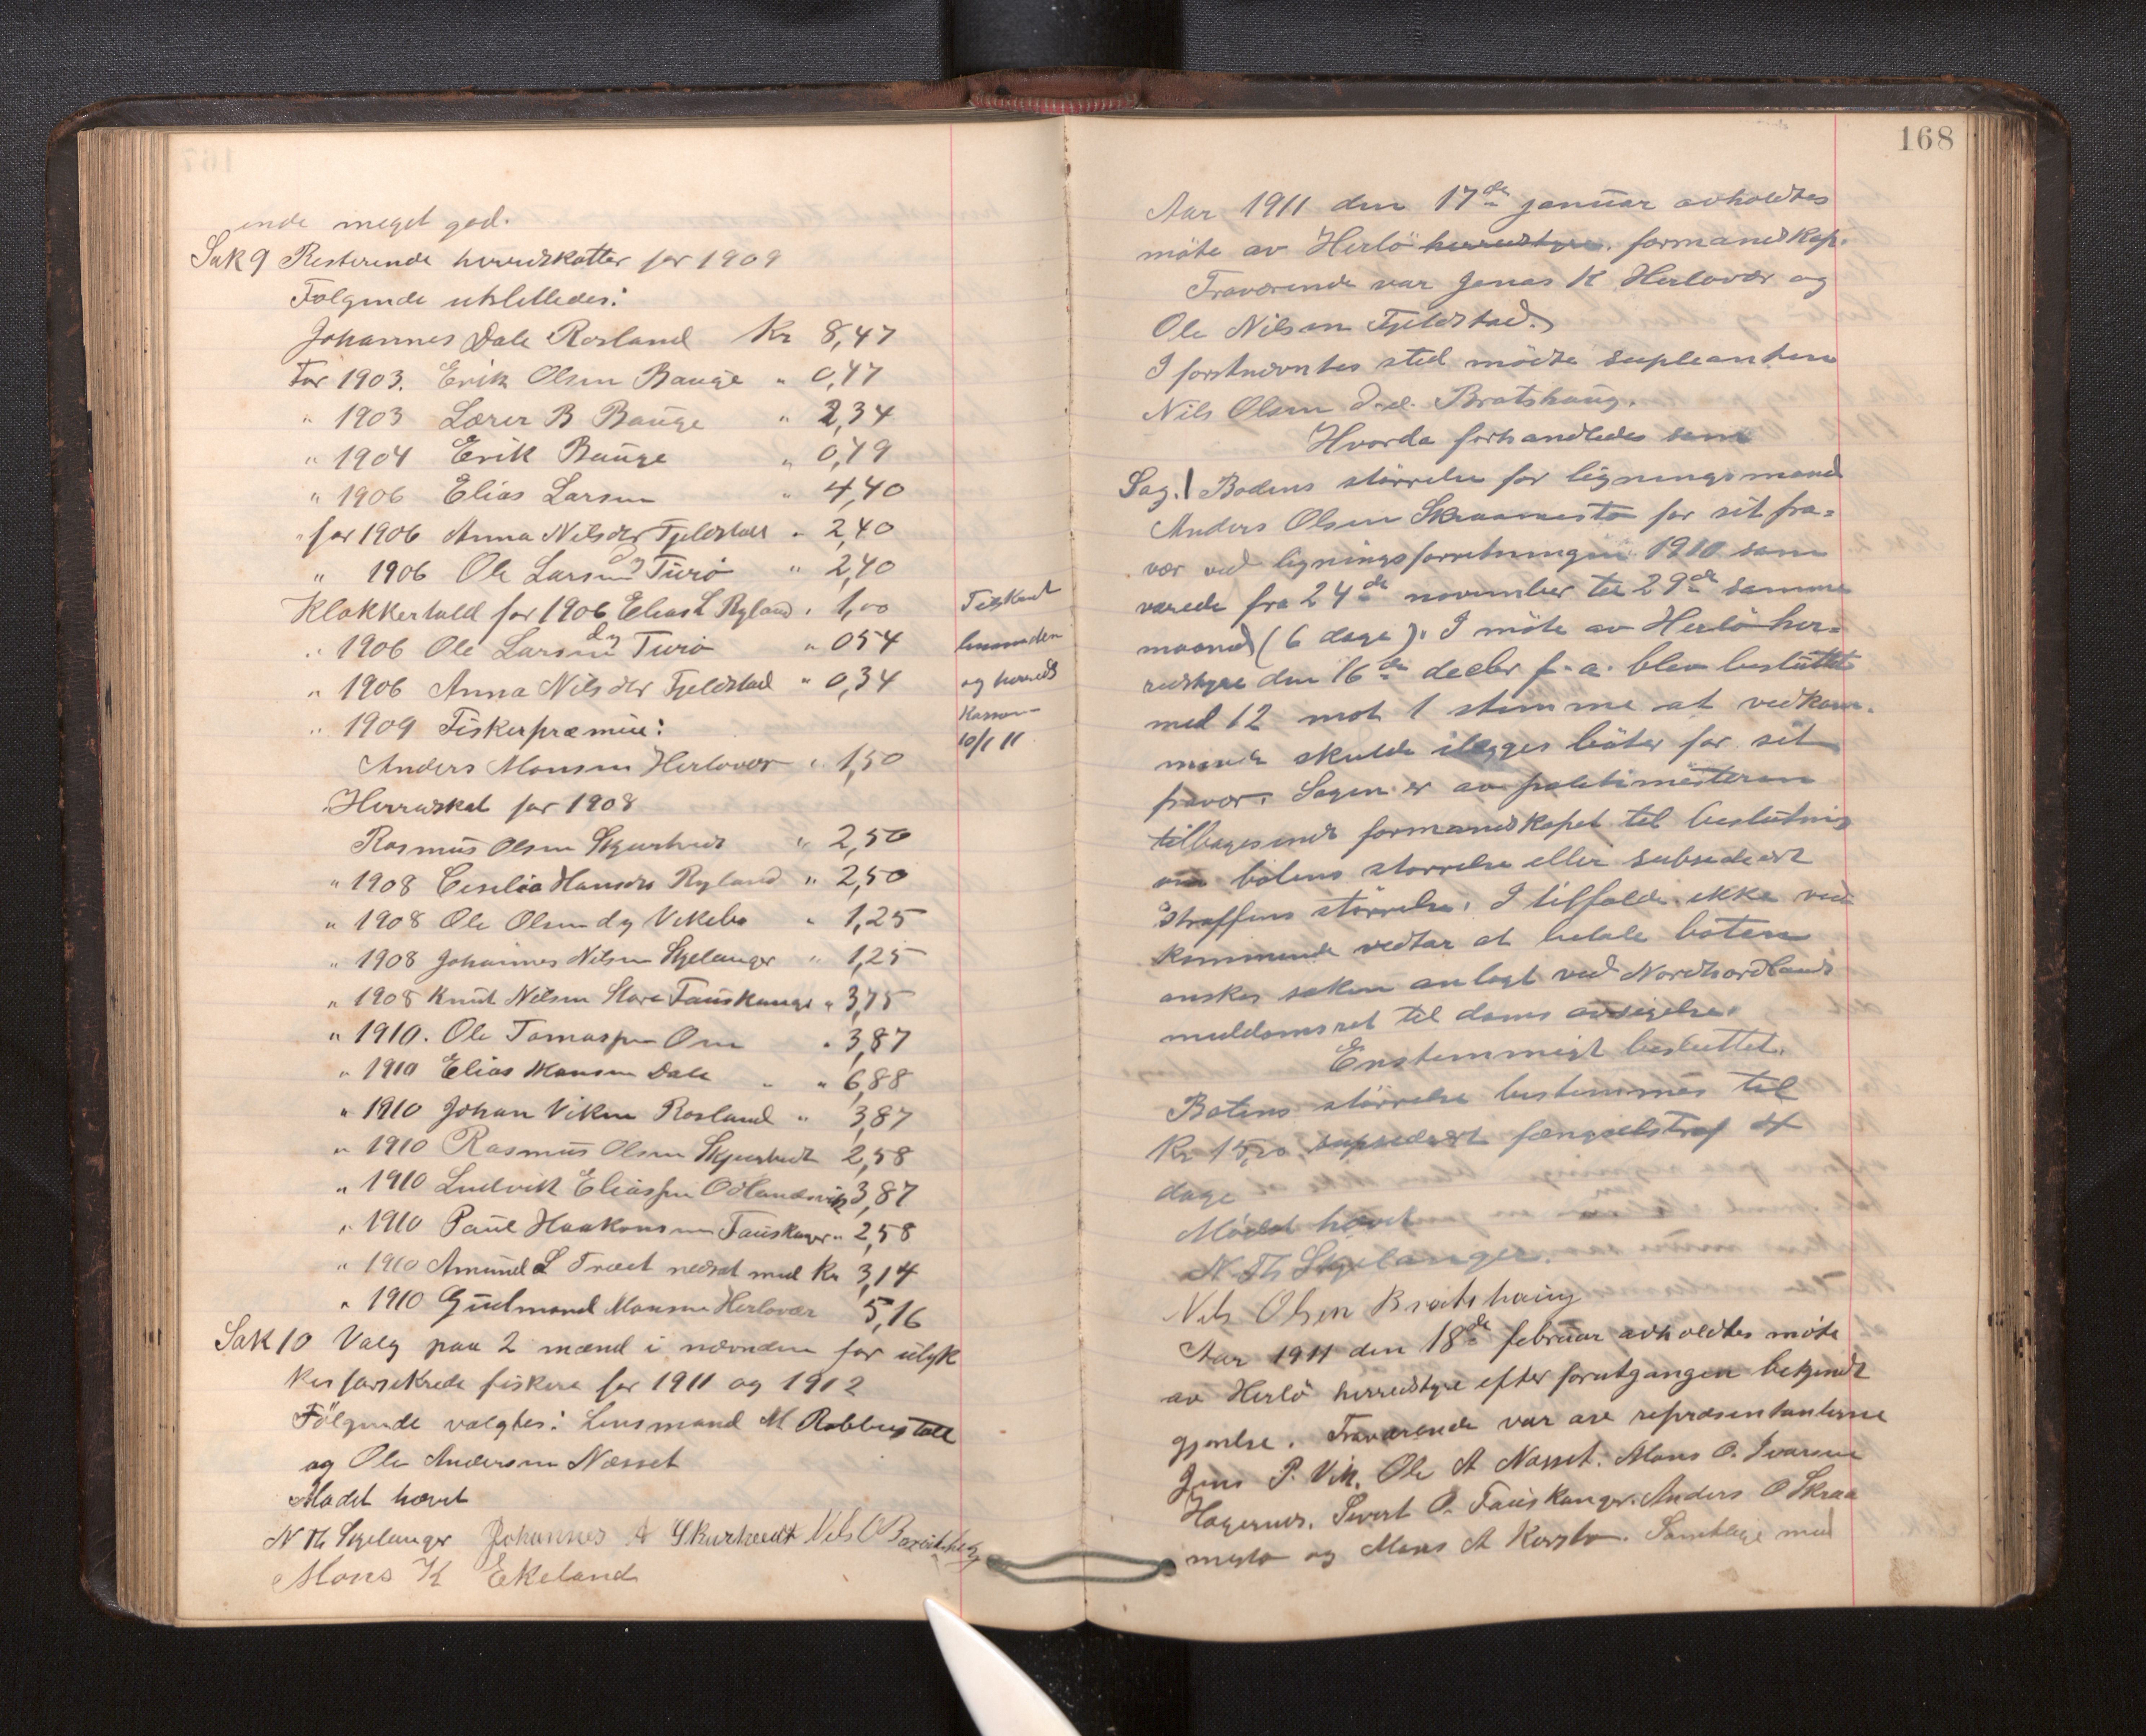 ende meget god.
Sak 9 Resterende herredskatter for 1909
Følgende utslettedes:
Johannes Dale Rosland Kr 8,47
For 1903. Erik Olsen Bauge " 0,47
" 1903 Lærer B Bauge " 2,34
" 1904 Erik Bauge " 0,49
" 1906 Elias Larsen " 4,40
" for 1906 Anna Nilsdtr Fjeldstad " 2,40
" 1906 Ole Larsen dy Turø " 2,40
Klokkertold for 1906 Elias L Ryland " 1,00
" 1906 Ole Larsen dy Turø " 054
" 1906 Anna Nilsdtr Fjeldstad " 0,34
" 1909 Fiskerpræmie:
Anders Monsen Herlovær " 1,50
Herredskat for 1908
Rasmus Olsen Skjurhvdt " 2,50
" 1908 Cesilia Hansdtr Ryland " 2,50
" 1908 Ole Olsen dy Vikebø " 1,25
" 1908 Johannes Nilsen Skjelanger " 1,25
" 1908 Knut Nilsen Store Fauskange " 3,75
" 1910. Ole Tomassen Oen " 3,87
" 1910 Elias Monsen Dale " " 6,88
" 1910 Johan Viken Rosland " 3,87
" 1910 Rasmus Olsen 2,58
" 1910 Ludvik Eliassen Odlandsvik 3,87
" 1910 Paul Haakonsen Fauskanger " 2,58
" 1910 Amund L Træet nedsat med Kr 3,14
" 1910 Gudmund Monsen Herlovær 5,16
Sak 10 Valg paa 2 mænd i nævnden for ulyk
kesforsekrede fiskere for 1911 og 1912
Følgende valgtes: Lensmand M Robberstad
og Ole Andersen Næsset
Mødet hævet
N Th Skjelanger Johannes A Skurtveit Nils O Bratshaug
Mons K Ekeland
Tilskent
lensmanden
og herreds
Kassen
10/1 11
168
Aar 1911 den 17de januar avholdtes
møte av Herlø herredstyre. formandskap.
Fraværende var Jonas K Herlovær og
Ole Nilsen Fjeldstad.
I førstnævntes sted mødte supleanten
Nils Olsen d.e. Bratshaug.
Hvorda forhandledes som
Sag. 1 Bodens størrelse for ligningsmand
Anders Olsen Skraamestø for sit fra=
vær ved ligningsforretningen 1910 som
varede fra 24de november til 29de samme
maaned (6 dage). I møte av Herlø her=
redstyre den 16de decbr f. a. blev besluttet
med 12 mot 1 stemme at vedkom-
mende skulde ilægges bøter for sit
fravær. Sagen er av politimesteren
tilbagesendt formandskapet til beslutning
om botens størrelse eller subsediært
straffens størrelse. I tilfælde ikke ved
kommende vedtar at betale boten
ønskes saken anlagt ved Nordhordlands
meddomsret til doms avsigelse.
Enstemmigt besluttet.
Botens størrelse bestemmes til
Kr 15,00, supsediært fængselstraf
dage
Mødet hævet
N. Th Skjelanger.
Nils Olsen Bratshaug
Aar 1911 den 18de februar avholdtes møte
av Herlø herredstyre efter forutgangen bekjendt
gjørelse. Fraværende var av repræsentanterne
Jens P. Vik. Ole A Næsset. Mons O. Ivarsen
Hagenes. Sivert O. Fauskanger. Anders O Skraa
mestø og Mons A Korsbø. Samtlige med